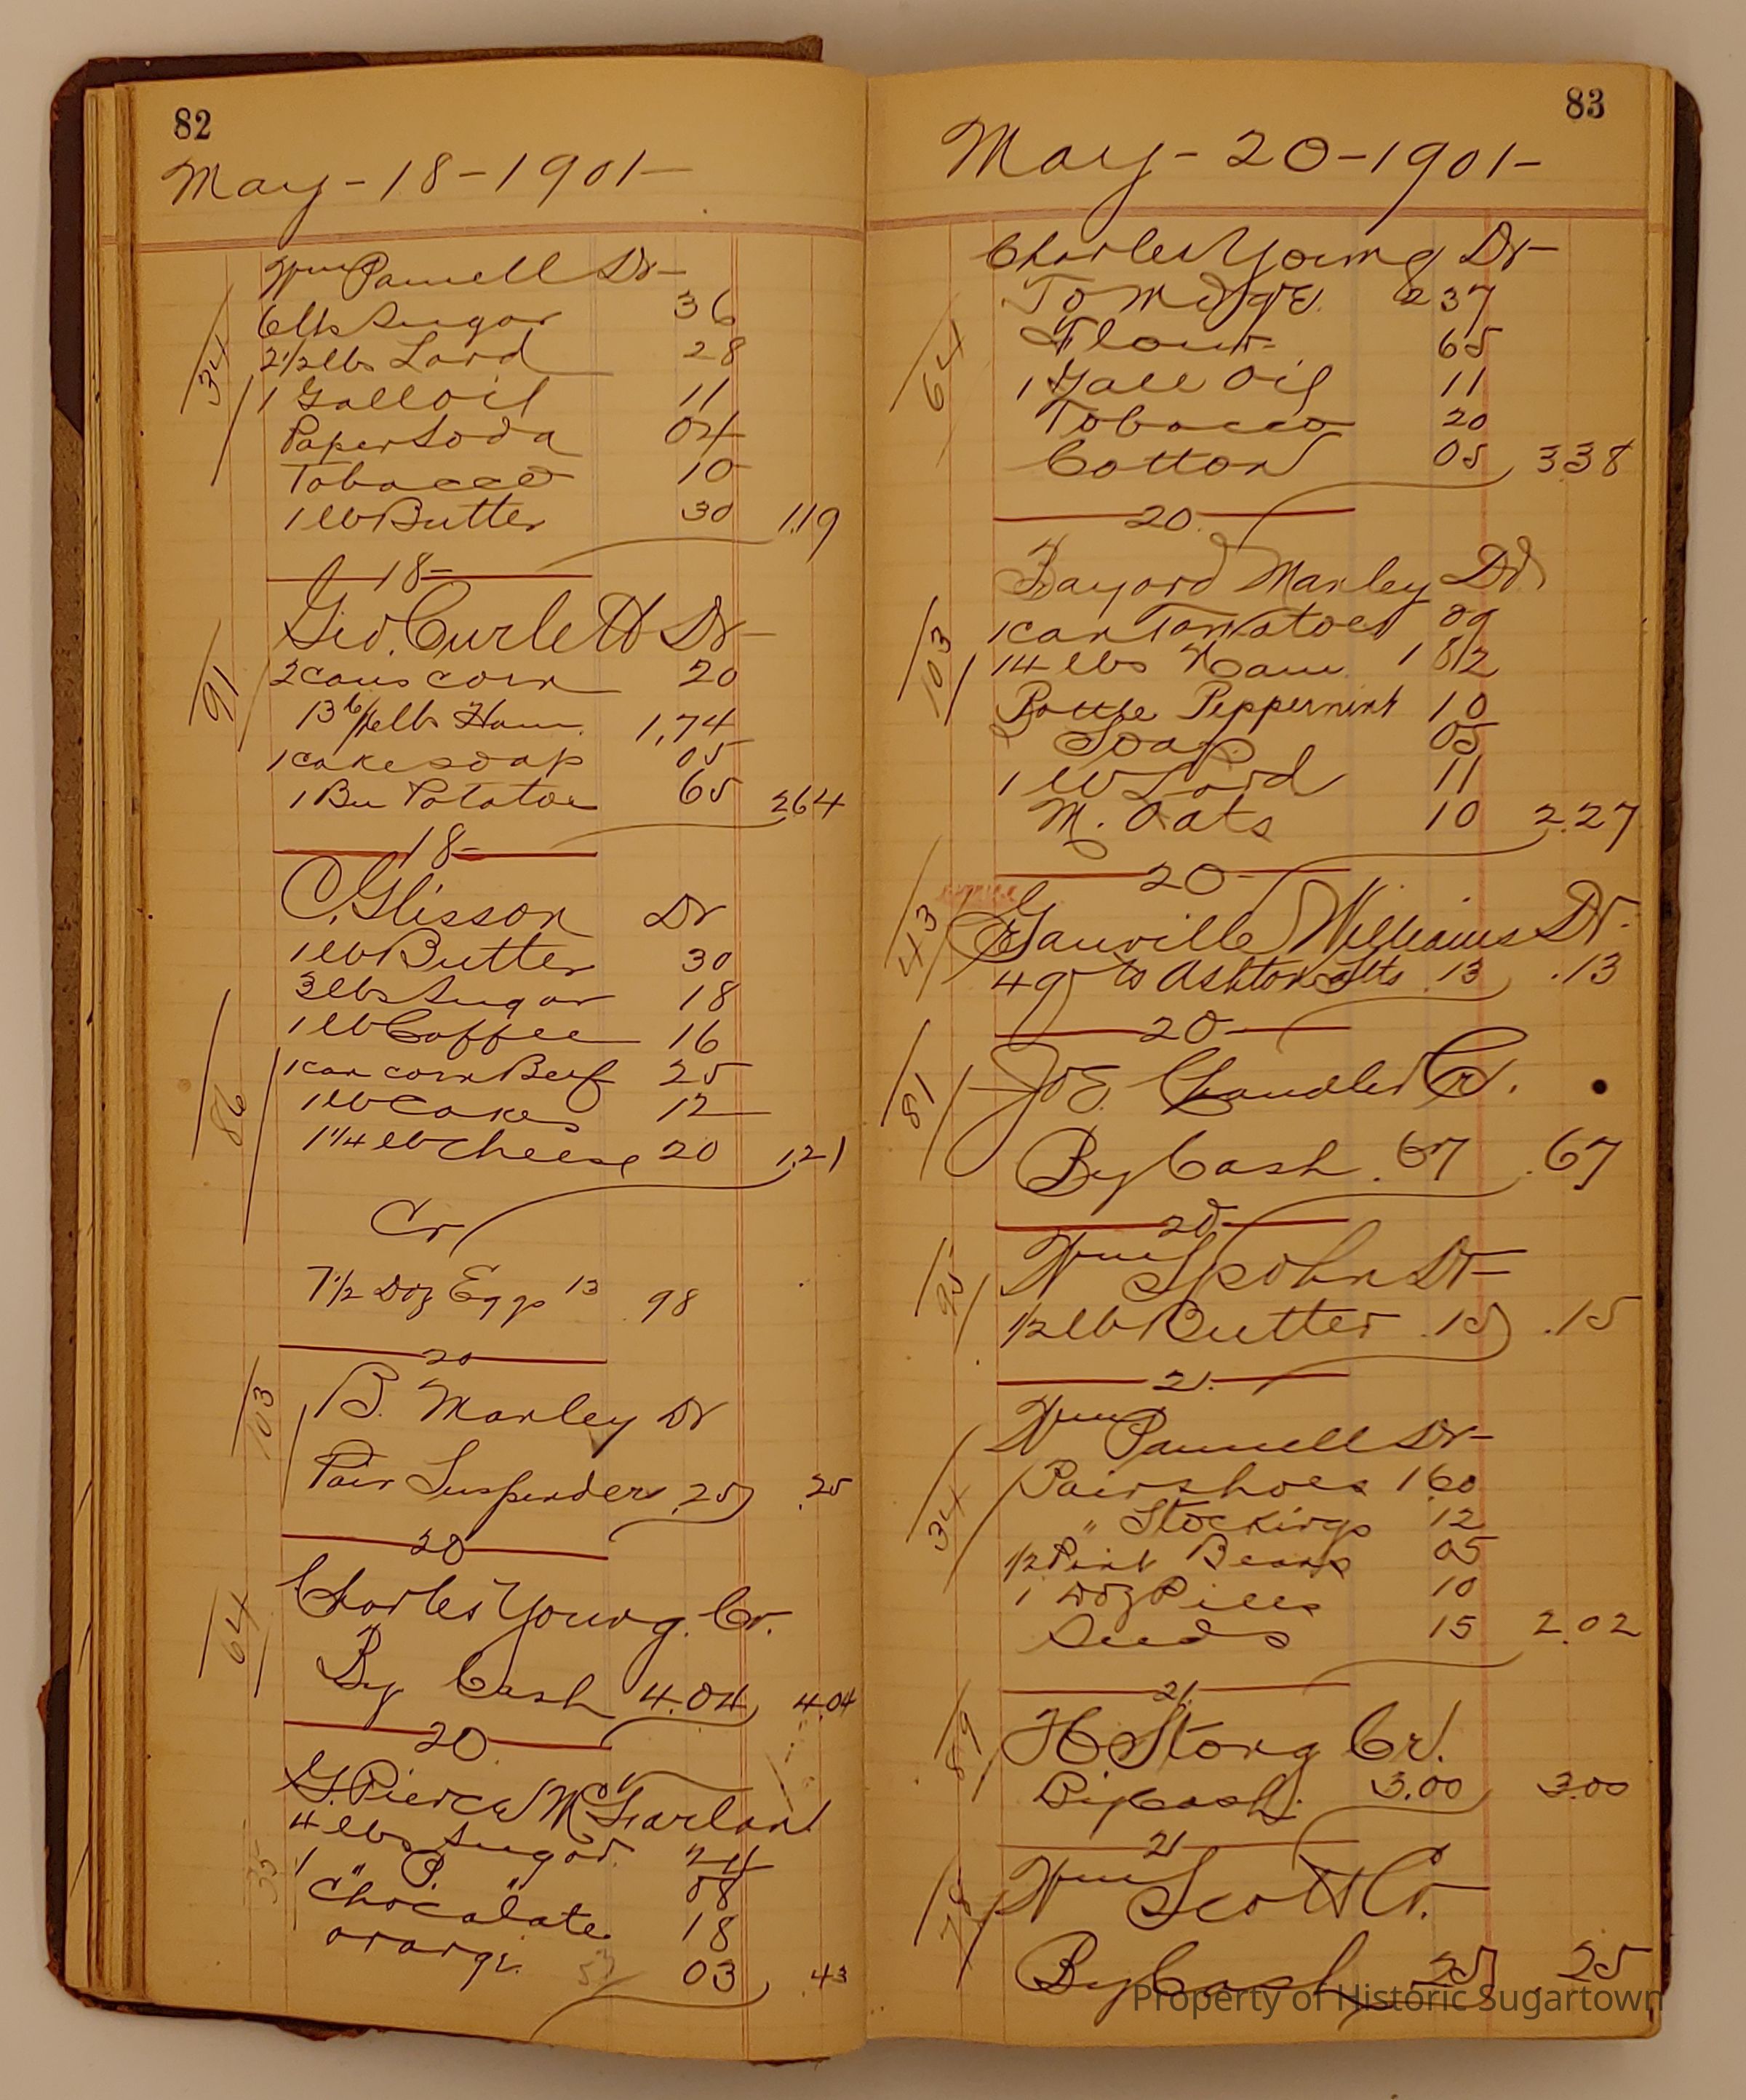 82
May-18-1901-
Wm Pannell Dr-
6 lbs Sugar 36
2 1/2 lbs Lard 28
34
1 Gall Oil 11
Paper Soda 04
Tobacco 10
1 lb Butter 30 1.19
18-
Geo. Curlett Dr-
91
2 cans corn 20
13 lbs Ham. 1,74
1 cake soap 05
1 Bu Potatoes 65 264
18-
C. Glisson Dr
1 lb Butter 30
3 lbs Sugar 18
1 lb Coffee 16
86
1 can corn Beef 25
1 lb Cakes 12
1 1/4 lb Cheese 20 1.21
Cr
7 1/2 Doz Eggs 13 .98
20
103
B. Manley Dr
Pair Suspenders .25 .25
20
64
Charles Young. Cr.
By Cash 4.04 4.04
20
G. Pierce McFarland
4 lbs Sugar. 24
35
1 " P. " 08
Chocalate 18
orange. 03 .43
83
May-20-1901-
Charles Young Dr-
To Mdse. 237
Flour 65
64
1 Gall Oil 11
Tobacco 20
Cotton 05 338
20
Bayard Manley Dr.
103
1 can Tomatoes 09
14 lbs Ham. 1 82
Bottle Peppermint 10
Soap 05
1 lb Lard 11
M. Oats 10 2.27
20
43
Granville Williams Dr.
49 to Ashton .13 .13
20
81
Jos. Chandler Cr.
By Cash .67 .67
20
95
Wm Spohn Dr-
1/2 lb Butter .15 .15
21.
Wm Pannell Dr-
34
Pair shoes 1.60
" Stockings 12
1/2 Pint Beans 05
1 Doz Pills 10
Seeds 15 2.02
21.
89
H Stong Cr.
By Cash. 3.00 3.00
21
78
Wm Scott Cr.
By Cash 25 25
Property of Historic Sugartown